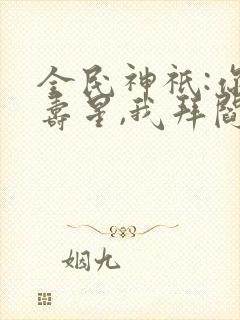 全民神祇:你
寿星,我拜阎
姻九